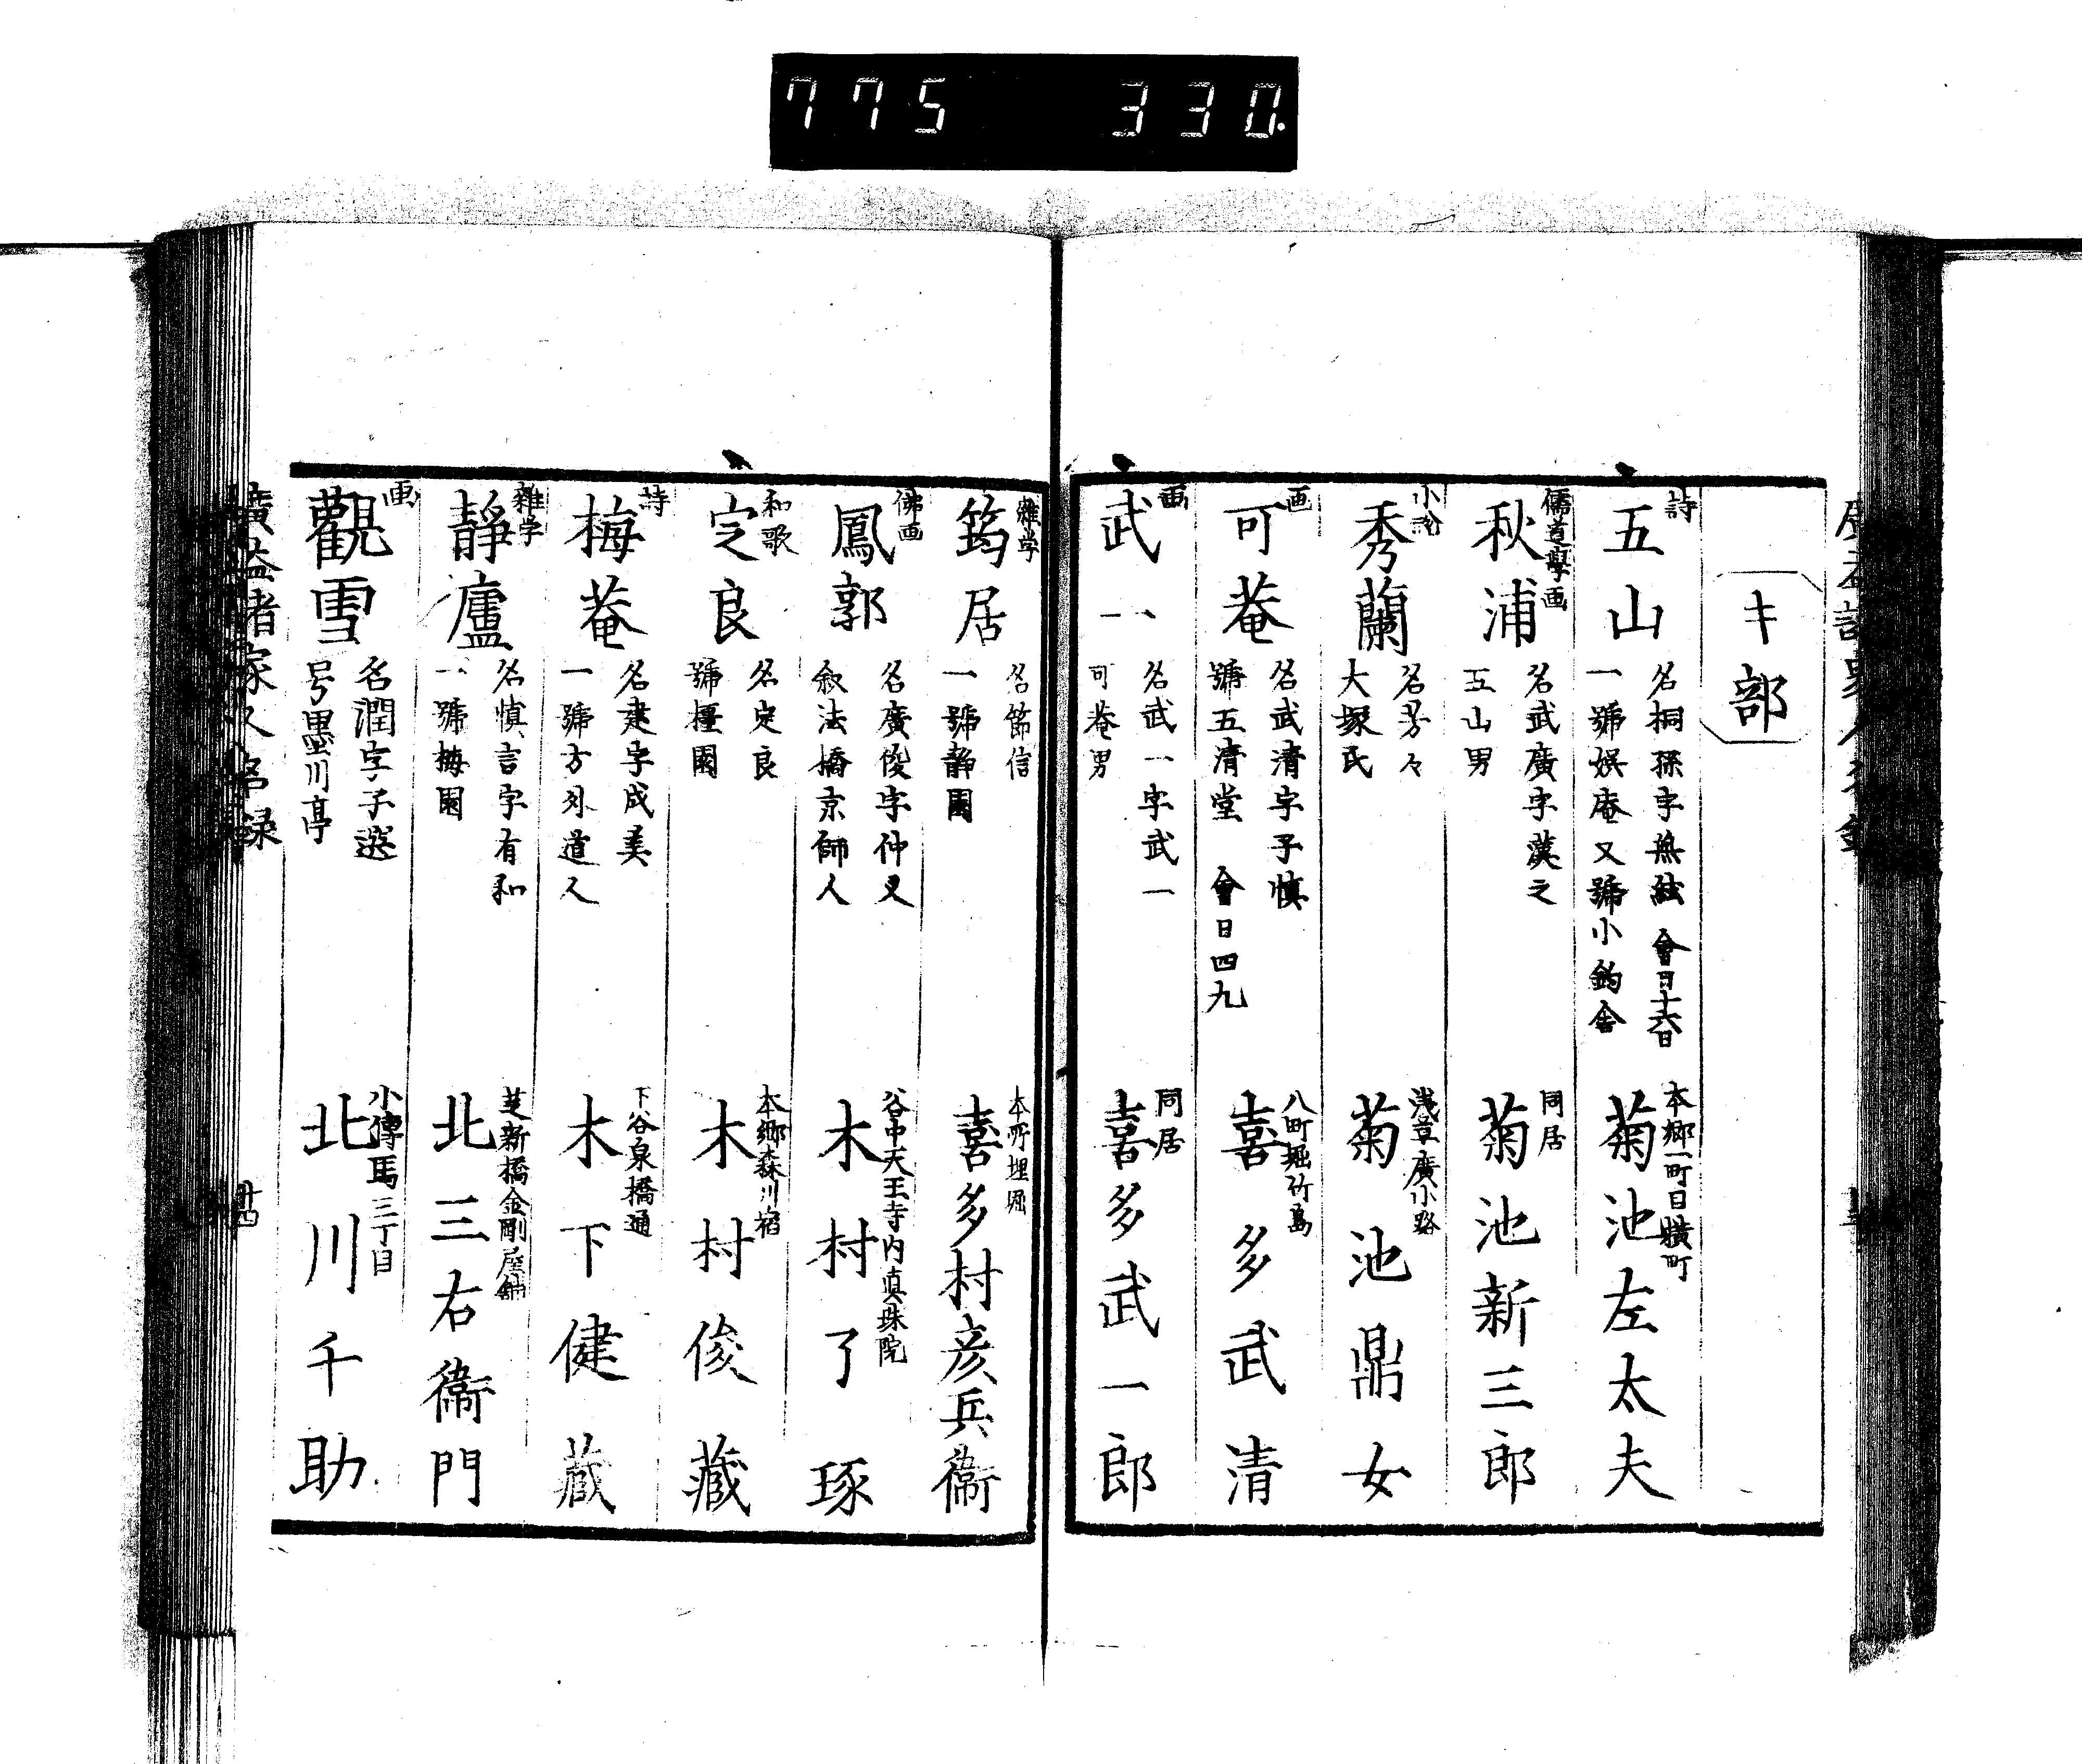 775 330.
キ部
詩
五山
名桐孫字無絃 會日十六日
一號娯庵又號小釣舎
本郷一町目横町
菊池左太夫
儒道學画
秋浦
名武廣字漢之
五山男
同居
菊池新三郎
小説
秀蘭
名芳々
大塚氏
浅草廣小路
菊池鼎女
画
可菴
名武清字子慎
號五清堂 會日四九
八町堀竹島
喜多武清
画
武一
名武一字武一
可菴男
同居
喜多武一郎
雜学
筠居
名節信
一號静園
本所埋堀
喜多村彦兵衞
佛画
鳳郭
名廣俊字仲叉
叙法橋京師人
谷中天王寺内真珠院
木村了琢
和歌
定良
名定良
號橿園
本郷森川宿
木村俊藏
詩
梅菴
名建字成美
一號方外道人
下谷泉橋通
木下健蔵
雜学
靜廬
名慎言字有和
一號梅園
芝新橋金剛屋鋪
北三右衞門
画
觀雪
名潤字子選
号墨川亭
小傳馬三丁目
北川千助
廣益諸家人名録
廿四